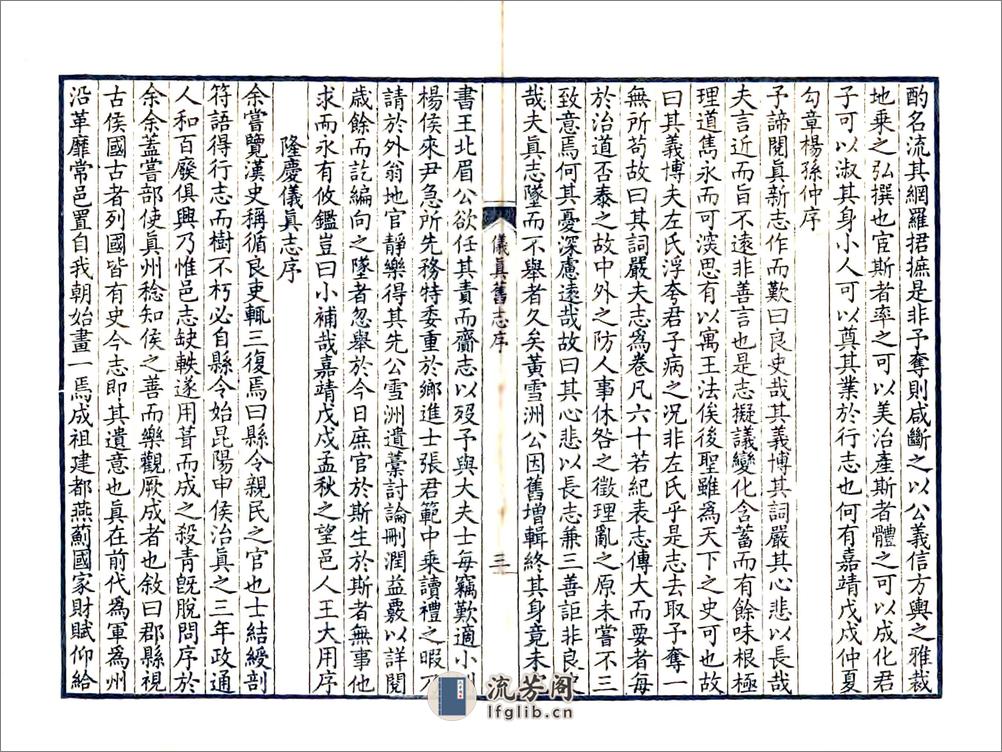 酌名流其網羅捃摭是非予奪則咸斷之以公義信方輿之雅裁
地乘之弘撰也宦斯者率之可以美治產斯者體之可以成化君
子可以淑其身小人可以奠其業於行志也何有嘉靖戊戌仲夏
勾章楊孫仲序
予諦閱眞新志作而歎曰良史哉其義博其詞嚴其心悲以長哉
夫言近而旨不遠非善言也是志擬議變化含蓄而有餘味根極
理道雋永而可深思有以寓王法俟後聖雖爲天下之史可也故
曰其義博夫左氏浮夸君子病之况非左氏乎是志去取予奪一
無所苟故曰其詞嚴夫志爲卷凡六十若紀表志傳大而要者每
於治道否泰之故中外之防人事休咎之徵理亂之原未嘗不三
致意焉何其憂深慮遠哉故曰其心悲以長志兼三善詎非良史
哉夫眞志墜而不舉者久矣黃雪洲公因舊增輯終其身竟未
儀眞舊志序
三
書王北眉公欲任其責而齎志以歿予與大夫士每竊歎適小
楊侯來尹急所先務特委重於鄉進士張君範中乘讀禮之暇乃
請於外翁地官靜樂得其先公雪洲遺藁討論刪潤益覈以詳閱
歲餘而訖編向之墜者忽舉於今日庶官於斯生於斯者無事他
求而永有攸鑑豈曰小補哉嘉靖戊戌孟秋之望邑人王大用序
隆慶儀眞志序
余嘗覽漢史稱循良吏輒三復焉曰縣令親民之官也士結綬剖
符語得行志而樹不朽必自縣令始昆陽申侯治眞之三年政通
人和百廢俱興乃惟邑志缺軼遂用葺而成之殺青旣脫問序於
余余蓋嘗部使眞州稔知侯之善而樂觀厥成者也敘曰郡縣視
古侯國古者列國皆有史今志即其遺意也眞在前代爲軍爲州
沿革靡常邑置自我朝始畫一焉成祖建都燕薊國家財賦仰給
流芳閣
lfglib.cn